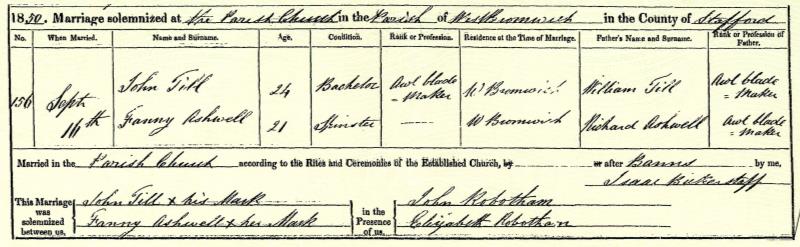 1850. Marriage solemnized at the Parish Church in the Parish of West Bromwich in the County of Stafford
No. When Married. Name and Surname. Age. Condition. Rank or Profession. Residence at the Time of Marriage. Father's Name and Surname. Rank or Profession of Father.
156 Sept 16th John Till 24 Bachelor Awl blade = Maker W Bromwich William Till Awl blade = Maker
Fanny Ashwell 21 Spinster —— W Bromwich Richard Ashwell Awl blade = Maker
Married in the Parish Church according to the Rites and Ceremonies of the Established Church, by or after Banns by me,
Isaac Bickerstaff
This Marriage was solemnized between us, John Till x his Mark
Fanny Ashwell x her Mark
in the Presence of us, John Robotham
Elizabeth Robotham